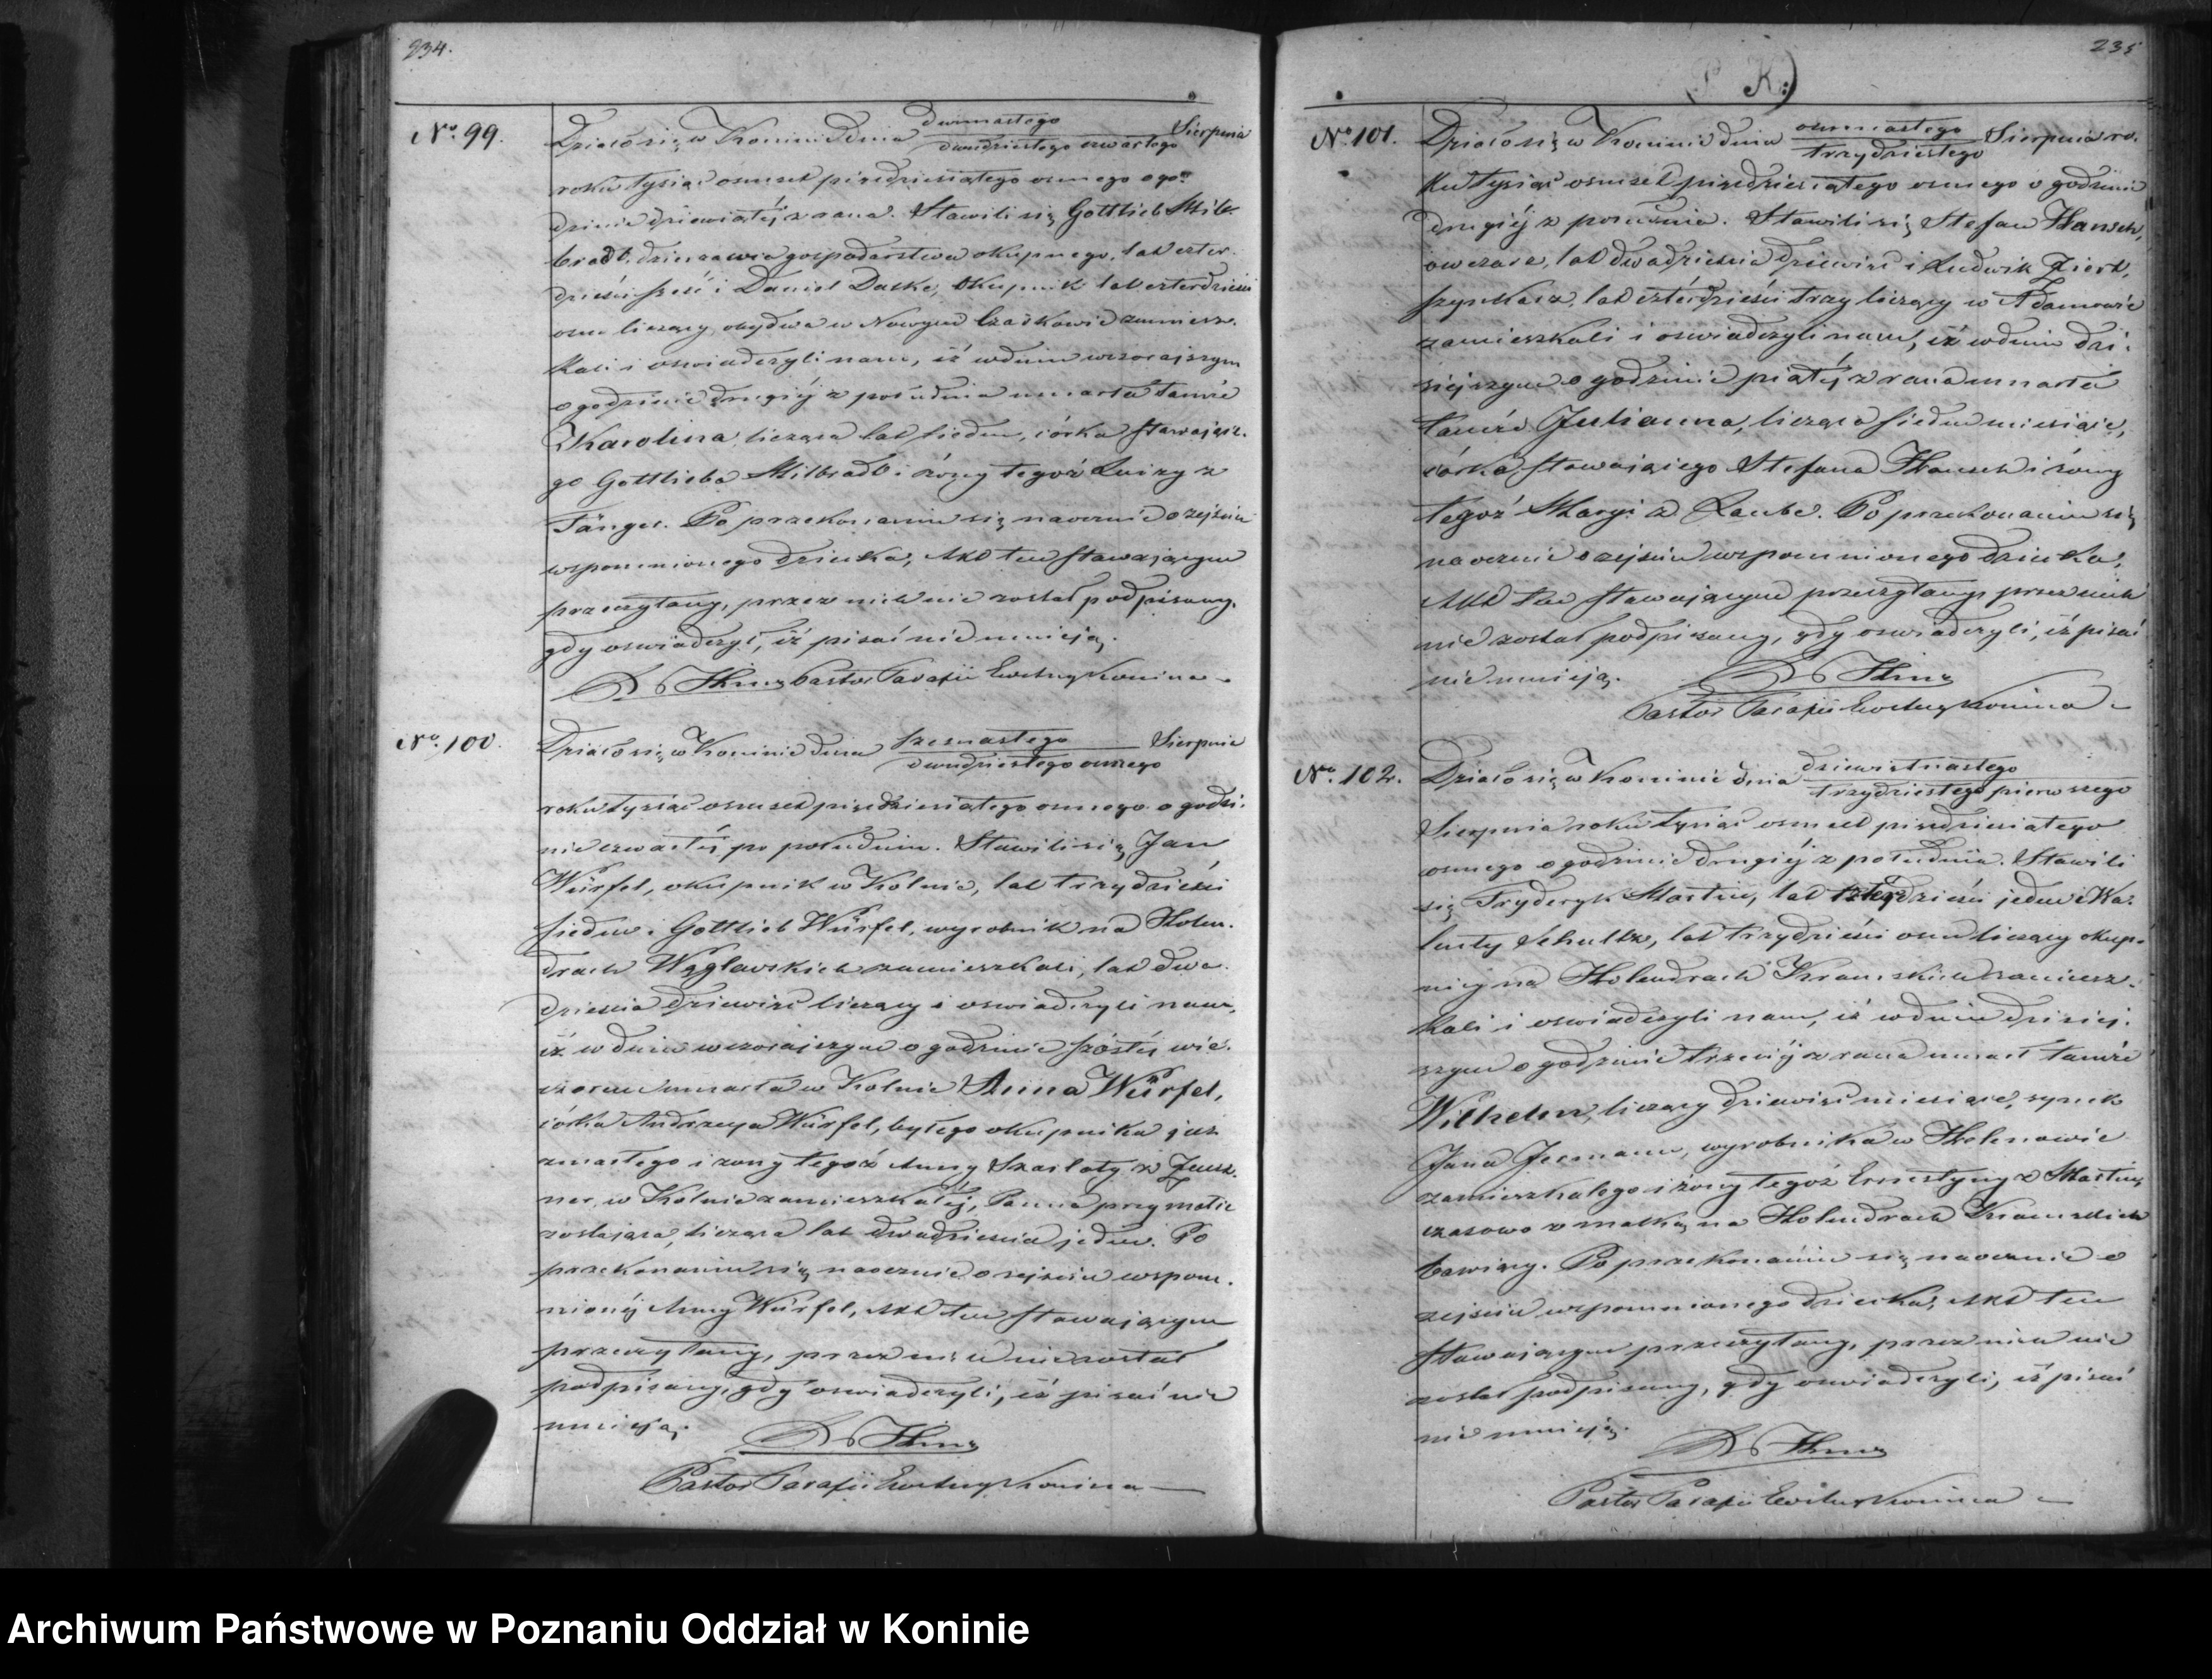 234.
No. 99.
Działo się w Koninie dnia dwunastego
dwudziestego czwartego Sierpnia
roku tysiąc osmset pięćdziesiątego osmego o go-
dzinie dziewiątéj z rana. Stawili się Gottlieb Mil-
bradt, dzierzawca gospodarstwa okupnego, lat czter-
dzieści sześć i Daniel Daske, okupnik lat czterdzieści
osm liczący, obydwa w Nowym Czarkowie zamiesz-
kali i oswiadczyli nam, iż w dniu wczorajszym
o godzinie drugiéj z południa umarła tamże
Karolina, licząca lat siedm, córka stawające-
go Gottlieba Milbradt i żony tegoż Luizy z
Fänger. Po przekonaniu się naocznie o zejściu
wspomnionego dziecka, Akt ten stawającym
przeczytany, przez nich nie został podpisany,
gdy oswiadczyli, iż pisać nie umieją.
Pastor Parafii Ewang Konina
No. 100.
Działo się w Koninie dnia szesnastego
dwudziestego osmego Sierpnia
roku tysiąc osmset pięćdziesiątego osmego o godzi-
nie czwartéj po południu. Stawili się Jan
Würfel, okupnik w Kolnie, lat trzydzieści
siedm i Gottlieb Würfel, wyrobnik na Holen-
drach Węglewskich zamieszkali, lat dwa-
dzieścia dziewięć liczący i oswiadczyli nam,
iż w dniu wczorajszym o godzinie szóstéj wie-
czorem umarła w Kolnie Anna Würfel,
córka Andrzeja Würfel, byłego okupnika już
zmarłego i żony tegoż Anny Szarloty z
w Kolnie zamieszkałéj, Panna przy matce
zostająca, licząca lat dwadzieścia jeden. Po
przekonaniu się naocznie o zejściu wspom-
nionéj Anny Würfel, Akt ten stawającym
przeczytany, przez nich nie został
podpisany, gdy oswiadczyli, iż pisać nie
umieją.
Pastor Parafii Ewang Konina
235
No. 101.
Działo się w Koninie dnia osmnastego
trzydziestego Sierpnia ro-
ku tysiąc osmset pięćdziesiątego osmego o godzinie
drugiéj z południa. Stawili się Stefan Hansch,
owczarz, lat dwadzieścia dziewięć i Ludwik
szynkarz, lat czterdzieści trzy liczący w Adamowie
zamieszkali i oswiadczyli nam, iż w dniu dzi-
siejszym o godzinie piątéj z rana umarła
tamże Julianna, licząca siedm miesięcy,
córka stawającego Stefana Hansch i żony
tegoż Maryi z Laube. Po przekonaniu się
naocznie o zejściu wspomnionego dziecka,
Akt ten stawającym przeczytany, przez nich
nie został podpisany, gdy oswiadczyli, iż pisać
nie umieją.
Pastor Parafii Ewang Konina
No. 102.
Działo się w Koninie dnia dziewiętnastego
trzydziestego pierwszego
Sierpnia roku tysiąc osmset pięćdziesiątego
osmego o godzinie drugiéj z południa. Stawili
się Fryderyk Martin, lat jeden i Wa-
lenty Schultz, lat trzydzieści osm liczący okup-
nicy na Holendrach Kramskich zamiesz-
kali i oswiadczyli nam, iż w dniu dzisiej-
szym o godzinie trzeciéj z rana umarł tamże
Wilhelm, liczący dziewięć miesięcy, synek
Jana wyrobnika w Helenowie
zamieszkałego i żony tegoż Ernestyny z Martin,
czasowo z matką na Holendrach Kramskich
bawiący. Po przekonaniu się naocznie o
zejściu wspomnionego dziecka, Akt ten
stawającym przeczytany, przez nich nie
został podpisany, gdy oswiadczyli, iż pisać
nie umieją.
Pastor Parafii Ewang Konina
Archiwum Państwowe w Poznaniu Oddział w Koninie